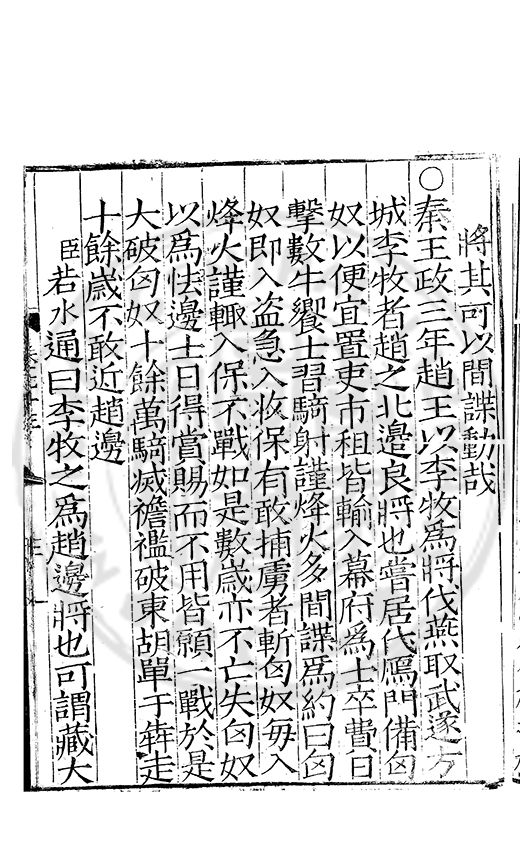 將其可以間諜動哉
○秦王政三年趙王以李牧爲將伐燕取武遂方
城李牧者趙之北邊良將也嘗居代鴈門備匈
奴以便宜置吏市租皆輸入幕府爲士卒費日
擊數牛饗士習騎射謹烽火多間諜爲約曰匈
奴即入盗急入收保有敢捕虜者斬匈奴每入
烽火謹輙入保不戰如是數歲亦不亡失匈奴
以爲怯邊士日得賞賜而不用皆願一戰於是
大破匈奴十餘萬騎滅襜襤破東胡單于犇走
十餘歲不敢近趙邊
臣若水通曰李牧之爲趙邊將也可謂藏大